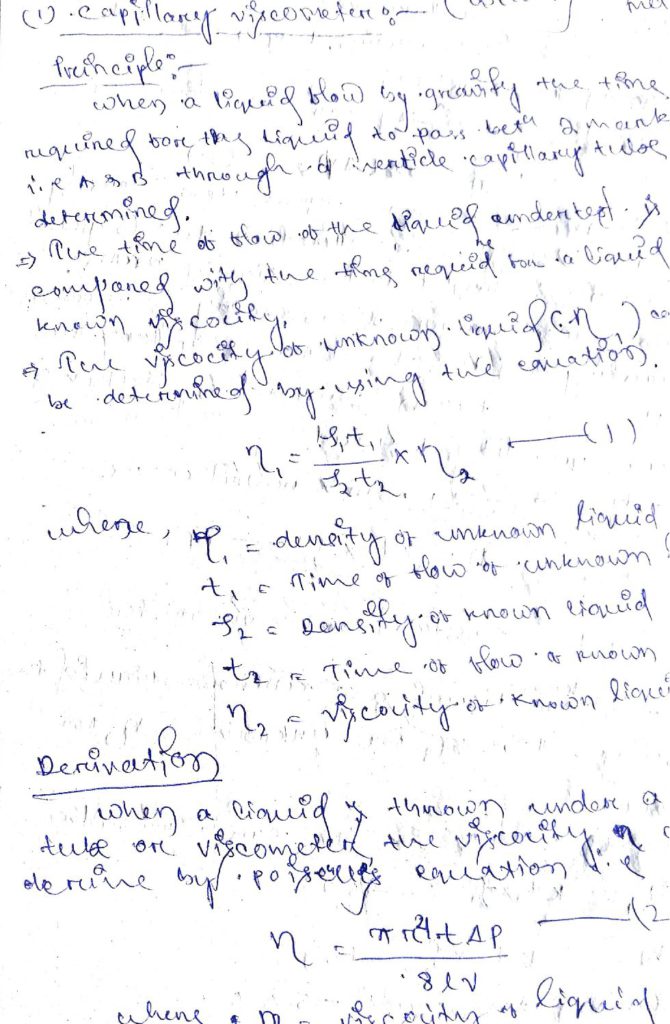 (1) Capillary viscometer :-
Principle :-
when a liquid flow by gravity the time
required for the liquid to pass betn 2 mark
i.e A & B through a verticle capillary tube
determined.
⇒ The time of flow of the liquid undertest is
compared with the time required for a liquid
known viscocity.
⇒ The viscocity of unknown liquid (η1)
be determined by using the equation.
η1 = ρ1t1 / ρ2t2 × η2 — (1)
where, ρ1 = density of unknown liquid
t1 = Time of flow of unknown
ρ2 = Density of known liquid
t2 = Time of flow of known
η2 = Viscocity of known
Derivation
when a liquid is thrown under a
tube or viscometer the viscocity η
derive by equation i.e
η = πr4tΔP / 8lV — (2
where η = viscocity of liquid